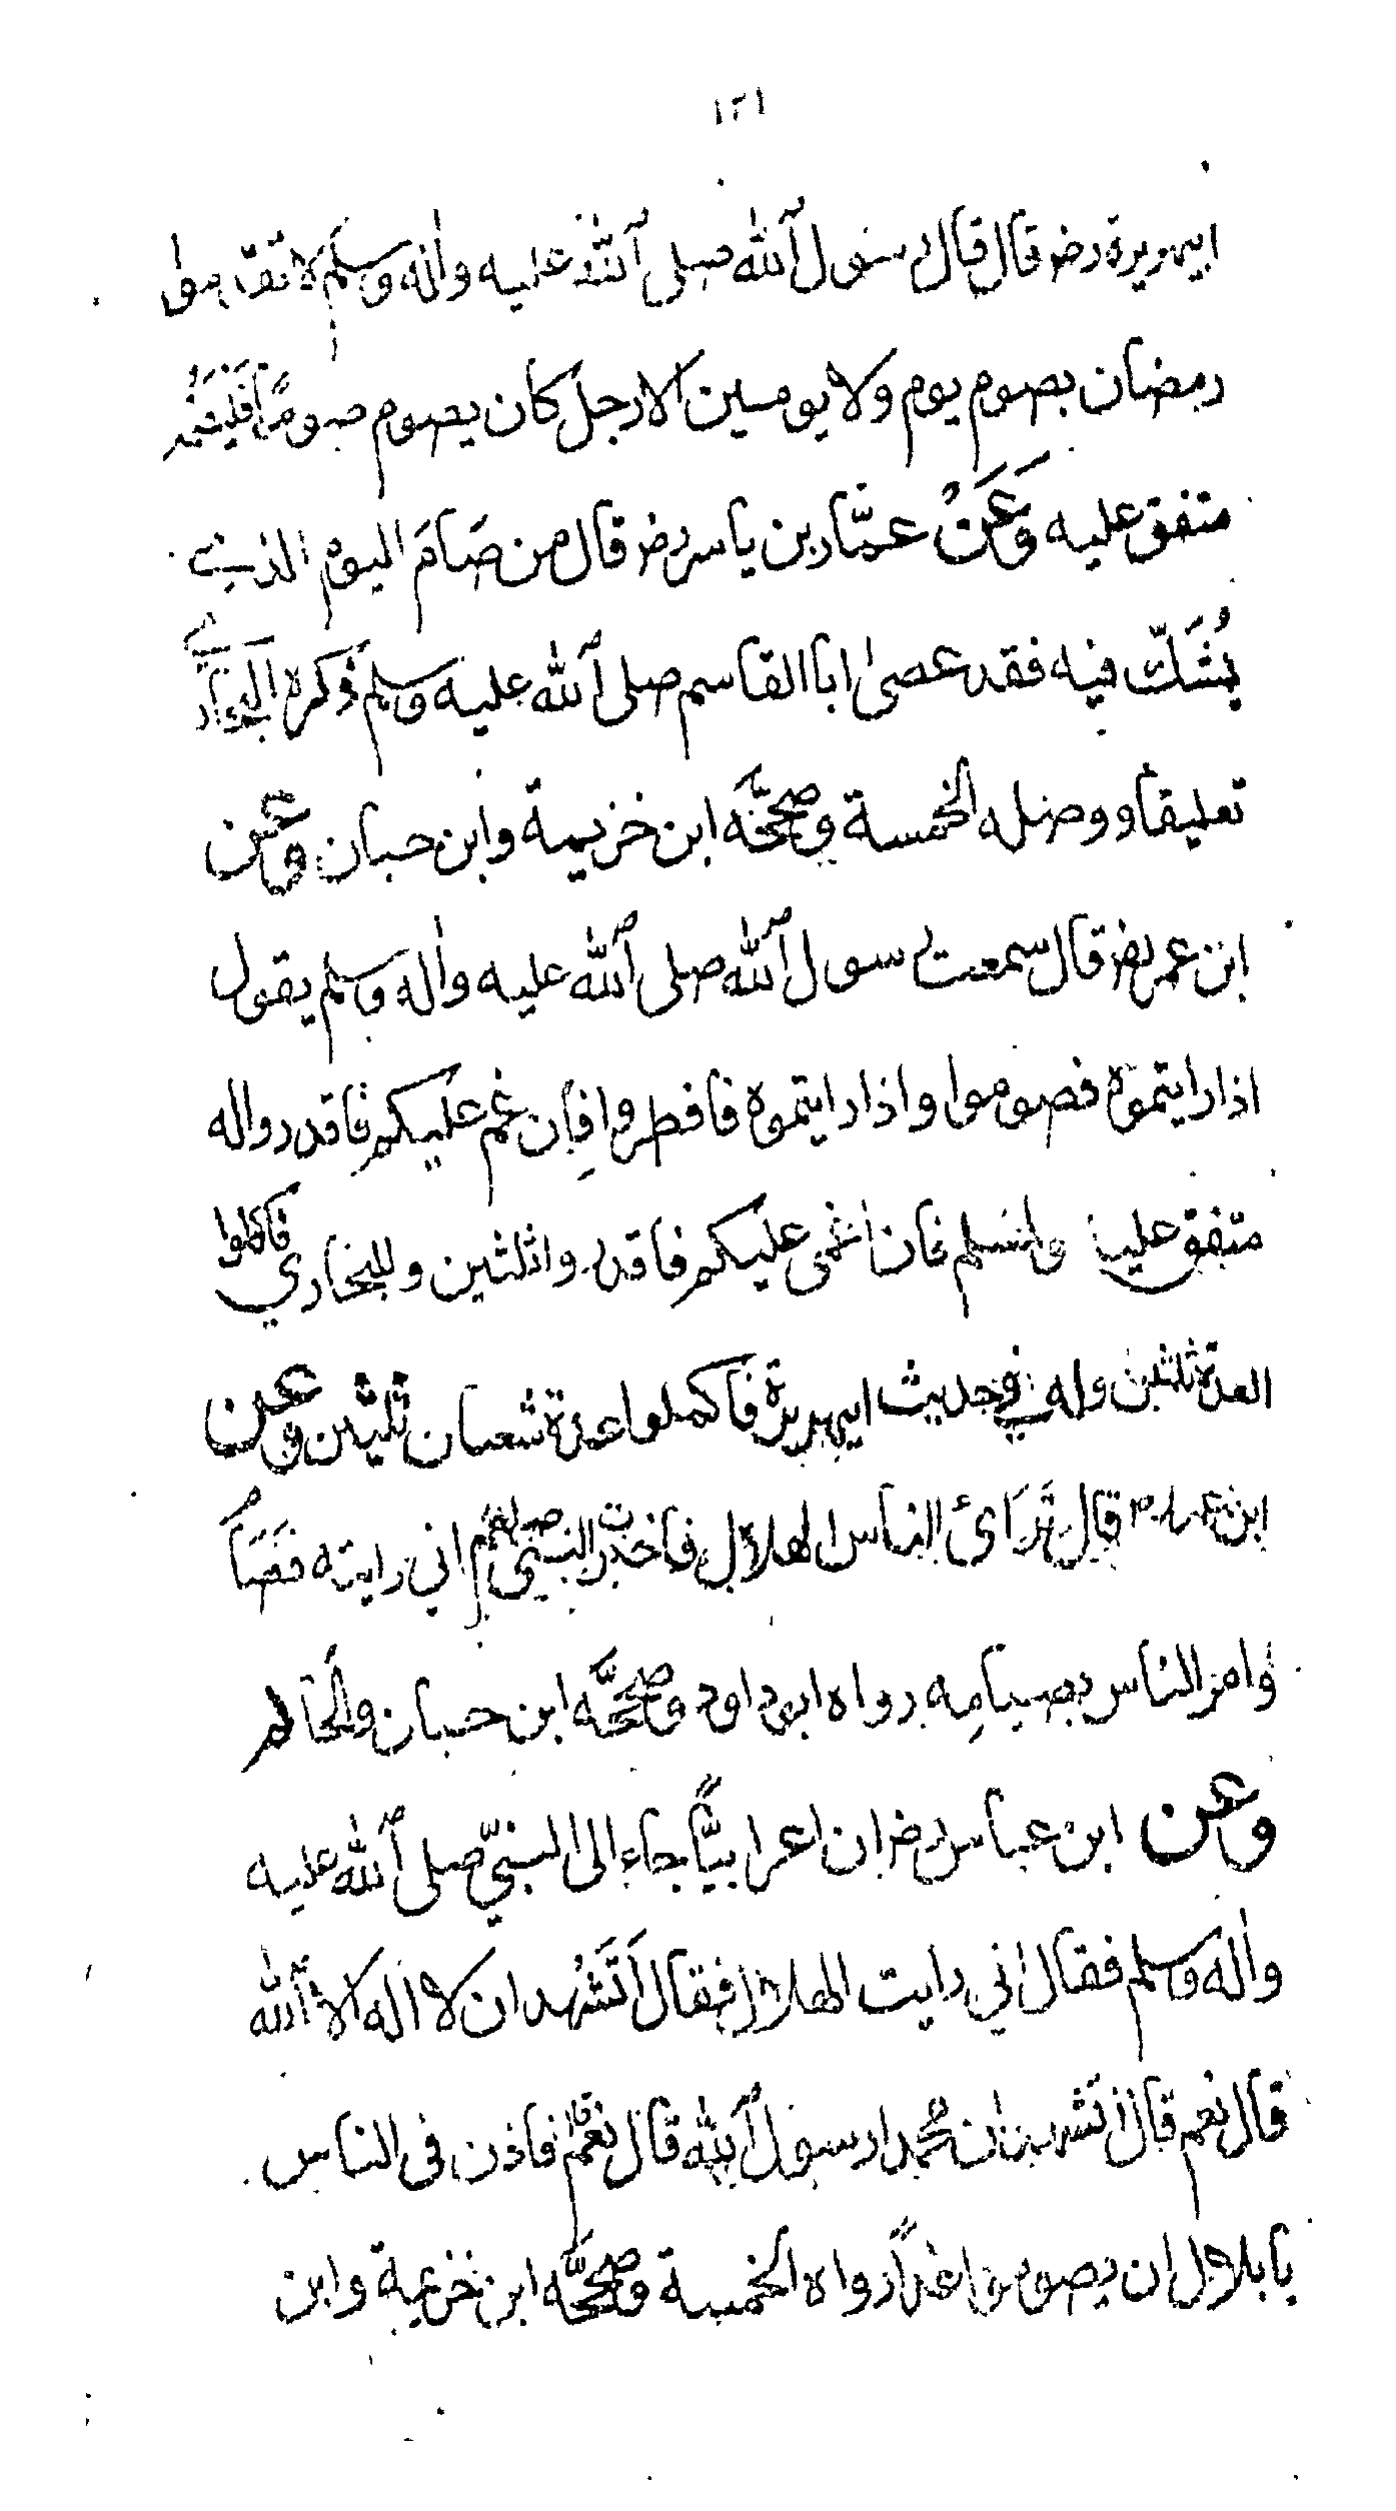 ١٢١
ابيهريرة رضـ قال قال رسول الله صلى الله عليه واٰله وسلم لا تقدموا
رمضان بصوم يوم ولا يومين الا رجل كان يصوم صومًا فليصمه
متفق عليه وَعَنْ عمّار بن ياسر رضـ قال من صَامَ اليوم الذي
يُشَكّ فيه فقد عصىٰ ابا القاسم صلى الله عليه وسلم ذكره البخاري
تعليقا ووصله الخمسة وصحّحَه ابن خزيمة وابن حبان وعن
ابن عمر رضـ قال سمعت رسول الله صلى الله عليه واٰله وسلم يقول
اذا رايتموه فصوموا واذا رايتموه فافطروا فاِن غم عليكم فاقدروا له
متفق عليه ولمسلم فان اغمى عليكم فاقدروا ثلثين وللبخاري فاكملوا
العدة ثلثين وله في حديث ابيهريرة فاكملوا عدة شعبان ثلثين وعن
ابن عمر رضـ قال تَرَائ الناس الهلال فاخبرت النبي صلعم اني رايته فصَامَ
وامر الناس بصيامِه رواه ابو داود وصحّحَه ابن حبان والحاكم
وعن ابن عباس رضـ ان اعرابيًّا جاء الى النبيّ صلى الله عليه
واٰله وسلم فقال اني رايت الهلال فقال اَتَشْهد ان لا اله الا الله
قال نعم قال اتشهد ان محمدا رسول الله قال نعم قال فاذن فى الناس
يا بلال ان يصوموا غدًا رواه الخمسة وصحّحَه ابن خزيمة وابن